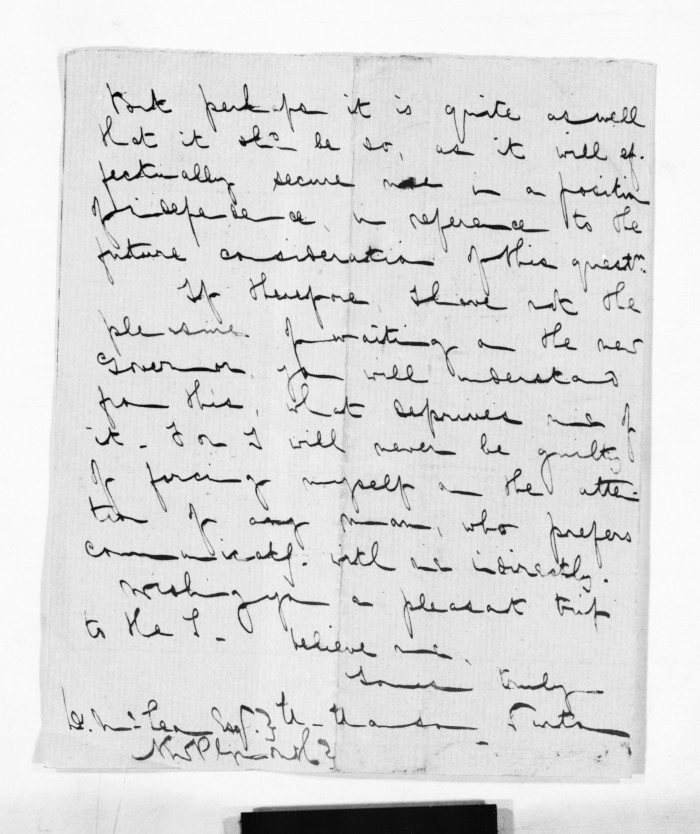 But perhaps it is quite as well
that it shd be so, as it will ef-
fectually secure me in a position
of independence, in reference to the
future consideration of this questn.
If therefore, I have not the
pleasure of waiting on the new
Governor, you will understand
from this, what deprives me of
it - For I will never be guilty
of forcing myself on the atten-
tion of any man, who prefers
communicatg. with me indirectly.
Wishing you a pleasant trip
to the S - believe me,
Yours truly
D. McLean Esq. }
New Plymouth }